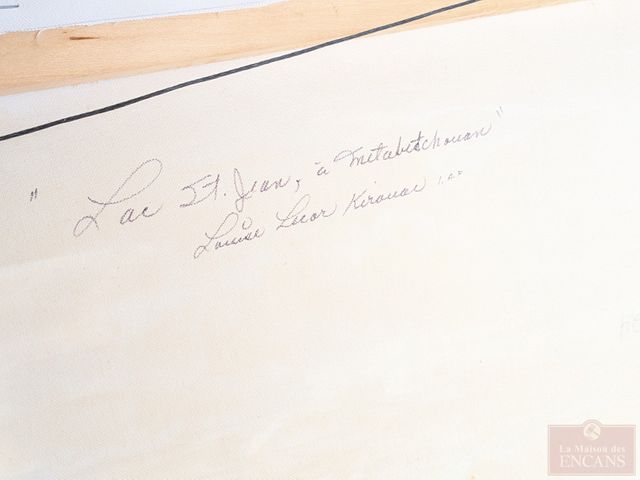 "Lac St. Jean, à Metabetchouan"
Louise Lecor Kirouac i.a.f.
La Maison des
ENCANS